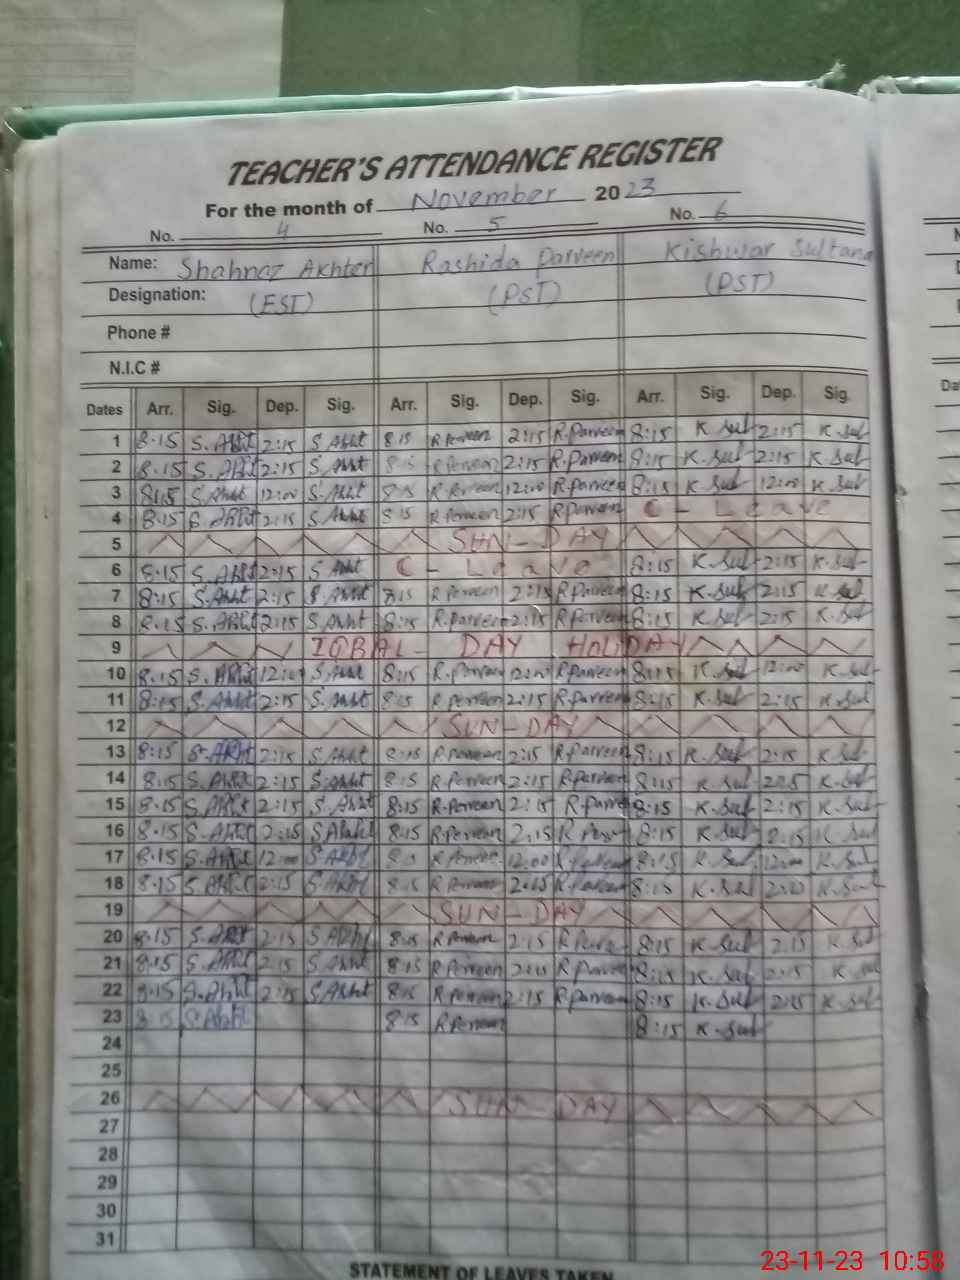 TEACHER'S ATTENDANCE REGISTER
For the month of November 2023
No. 4 No. 5 No. 6
Name: Shahnaz Akhter Rashida Parveen Kishwar Sultana
Designation: (EST) (PST) (PST)
Phone #
N.I.C #
Dates Arr. Sig. Dep. Sig. Arr. Sig. Dep. Sig. Arr. Sig. Dep. Sig.
1 8:15 S. Akht 2:15 S. Akht 8:15 R Parveen 2:15 R. Parveen 8:15 K Sul 2:15 K. Sul
2 8:15 S. Akht 2:15 S. Akht 8:15 R Parveen 2:15 R. Parveen 8:15 K. Sul 2:15 K. Sul
3 8:15 S. Akht 12:00 S. Akht 8:15 R. Parveen 12:00 R. Parveen 8:15 K. Sul 12:00 K. Sul
4 8:15 S. Akht 2:15 S. Akht 8:15 R Parveen 2:15 R Parveen C - Leave
5 SUN - DAY
6 8:15 S. Akht 2:15 S. Akht C - Leave 8:15 K. Sul 2:15 K. Sul
7 8:15 S. Akht 2:15 S. Akht 8:15 R Parveen 2:15 R. Parveen 8:15 K. Sul 2:15 K Sul
8 8:15 S. Akht 2:15 S. Akht 8:15 R. Parveen 2:15 R. Parveen 8:15 K. Sul 2:15 K. Sul
9 IQBAL - DAY HOLIDAY
10 8:15 S. Akht 12:00 S. Akht 8:15 R. Parveen 12:00 R. Parveen 8:15 K. Sul 12:00 K. Sul
11 8:15 S. Akht 2:15 S. Akht 8:15 R Parveen 2:15 R. Parveen 8:15 K. Sul 2:15 K. Sul
12 SUN - DAY
13 8:15 S. Akht 2:15 S. Akht 8:15 R Parveen 2:15 R. Parveen 8:15 K. Sul 2:15 K. Sul
14 8:15 S. Akht 2:15 S. Akht 8:15 R. Parveen 2:15 R. Parveen 8:15 K. Sul K. Sul
15 8:15 S. Akht 2:15 S. Akht 8:15 R. Parveen 2:15 R. Parveen 8:15 K. Sul 2:15 K. Sul
16 8:15 S. Akht 2:15 S Akht 8:15 R. Parveen 2:15 R 8:15 K. Sul 8:15 K Sul
17 8:15 S. Akht 12:00 S. Akht 8:15 R Parveen 12:00 R Parveen 8:15 K. Sul 12:00 K. Sul
18 8:15 S. Akht 2:15 S. Akht 8:15 R Parveen 2:15 R Parveen 8:15 K. Sul K. Sul
19 SUN - DAY
20 8:15 S. Akht 2:15 S Akht 8:15 R Parveen 2:15 R 8:15 K. Sul 2:15 K. Sul
21 8:15 S. Akht 2:15 S. Akht 8:15 R Parveen 2:15 R. Parveen 8:15 K. Sul 2:15 K Sul
22 8:15 S. Akht 2:15 S. Akht 8:15 R Parveen 2:15 R. Parveen 8:15 K. Sul 2:15 K. Sul
23 8:15 S. Akht 8:15 R Parveen 8:15 K. Sul
24
25
26 SUN - DAY
27
28
29
30
31
STATEMENT OF LEAVES TAKEN
23-11-23 10:58